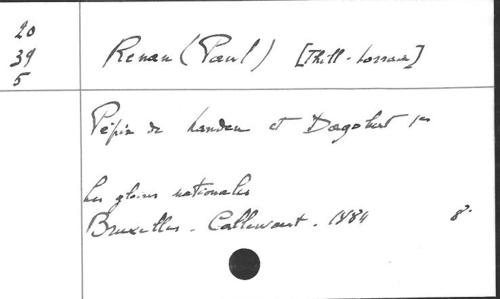 20
39
5
Renan (Paul) [Thill-Lorrain]
Pépin de Landen et Dagobert 1er
Les gloires nationales
Bruxelles. Callewaert. 1884 8°